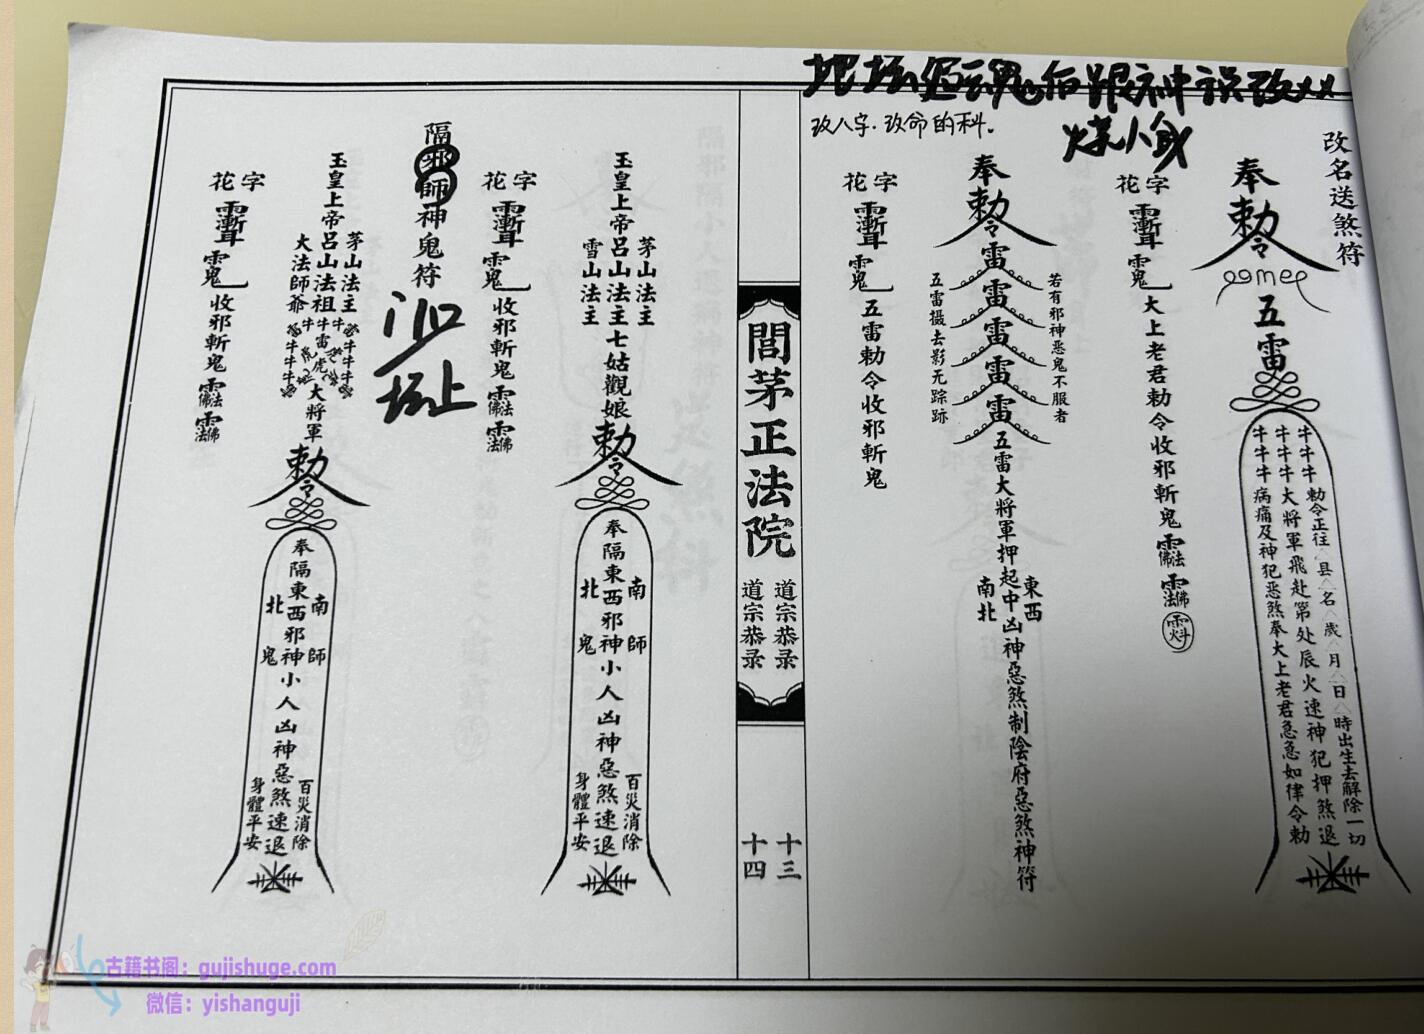 改八字.改命的科。
改名送煞符
奉
勅令
五雷
牛牛牛勅令正往 县 名 歲 月 日 時出生去解除一切
牛牛牛大将軍飛赴第处辰火速神犯押煞退
牛牛牛病痛及神犯恶煞奉大上老君急急如律令勅
花字
大上老君勅令收邪斬鬼
奉
勅令
雷
雷
雷
雷
雷
若有邪神恶鬼不服者
五雷摄去影无踪跡
五雷大将軍押起中凶神惡煞制陰府惡煞神符
東西
南北
花字
五雷勅令收邪斬鬼
閭茅正法院
道宗恭录
道宗恭录
十三
十四
玉皇上帝呂山法主七姑觀娘
茅山法主
雪山法主
勅令
奉隔東西邪神小人凶神惡煞速退
南師
北鬼
百災消除
身體平安
花字
收邪斬鬼
隔邪師神鬼符
玉皇上帝呂山法祖
茅山法主
大法師爺
大将軍
勅令
奉隔東西邪神小人凶神惡煞速退
南師
北鬼
百災消除
身體平安
花字
收邪斬鬼
古籍书阁：gujishuge.com
微信：yishanguji